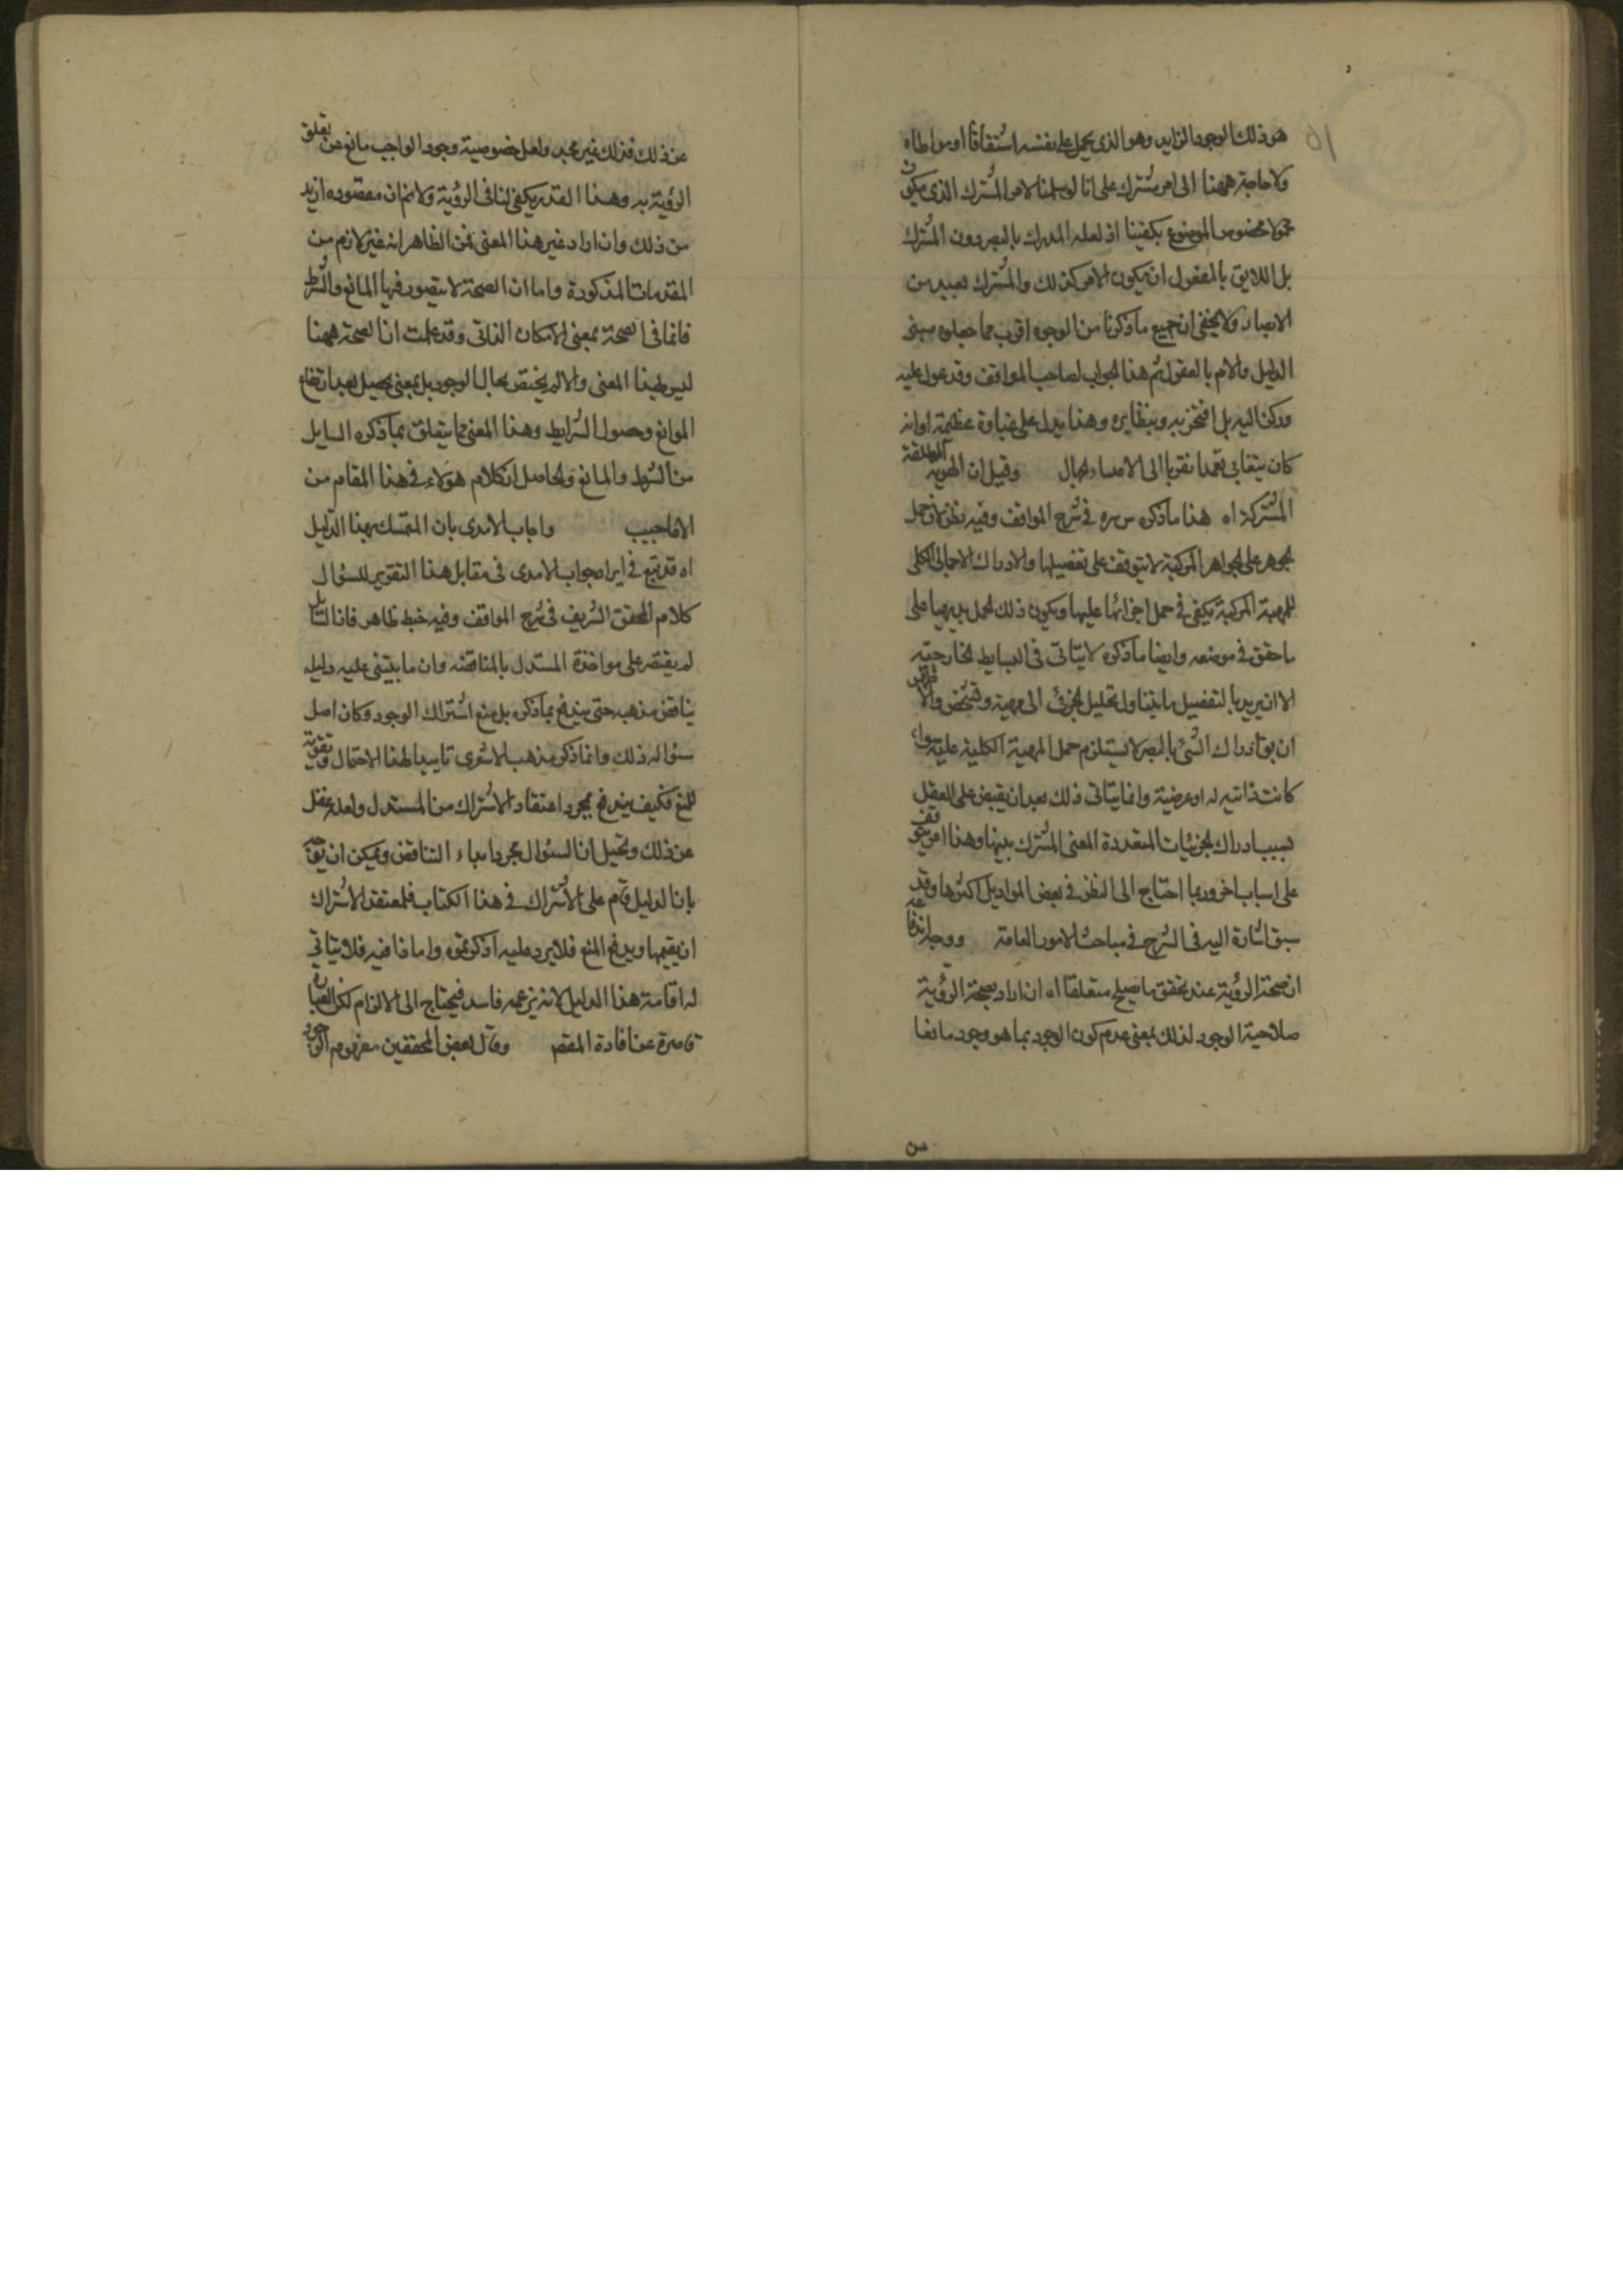 هو ذلك الوجود الزايد وهو الذى يحمل على نفسه اشتقاقا او مواطاه
ولا حاجة ههنا الى امر مشترك على انا لو سلمنا لامر المشترك الذى يكون
محمولا مخصوص الموضوع يكفينا اذ لعله المدرك بالبصر دون المشترك
بل اللايق بالمعقول ان يكون الامر كذلك والمشترك بعيد من
الابصار ولا يخفى ان جميع ما ذكرنا من الوجوه اقرب مما جعلوه مبنى
الدليل والايم بالعقول ثم هذا الجواب لصاحب المواقف وقد عول عليه
وركن اليه بل افتخر به وبنظايره وهذا يدل على غباوة عظيمة او انه
كان يتغابى تعمدا تقربا الى الامساء الجهال وقيل ان الهوية المطلقة
المشتركة اه هذا ما ذكره س سره فى شرح المواقف وفيه نظر لان حمل
الجوهر على الجواهر المركبة لا يتوقف على تفصيلها والادراك الاجمالى الكلى
للمهية المركبة يكفى فى حمل اجزائها عليها ويكون ذلك الحمل بديهيا على
ما حقق فى موضعه وايضا ما ذكره لا يتاتى فى البسايط الخارجية
الا ان يريد بالتفصيل ما يتناول تحليل الجزئى الى مهية وتشخص والا
ان يق ادراك الشئ بالبصر لا يستلزم حمل المهية الكلية عليه سواء
كانت ذاتيه له او عرضية وانما يتاتى ذلك بعد ان يقبض على العقل
بسبب ادراك الجزئيات المتعددة المعنى المشترك بينها وهذا امر يتوقف
على اسباب اخر وربما احتاج الى النظر فى بعض المواد بل اكثرها وقد
سبق اشارة اليه فى الشرح فى مباحث الامور العامة ووجه اندفاعه
ان صحة الرؤية عند تحقق ما يصلح متعلقا اه ان اراد بصحة الرؤية
صلاحية الوجود لذلك بمعنى عدم كون الوجود بما هو وجود مانعا
من
عن ذلك فذلك غير مجد ولعل خصوصية وجود الواجب مانع عن تعلق
الرؤية به وهذا القدر يكفى لنا فى الرؤية ولا نم ان مقصوده ازيد
من ذلك وان اراد غير هذا المعنى فمن الظاهر انه غير لازم من
المقدمات المذكورة واما ان الصحة لا يتصور فيها المانع والشرط
فانما فى الصحة بمعنى الامكان الذاتى وقد علمت ان الصحة ههنا
ليس بهذا المعنى والا لم يختص بحال الوجود بل بمعنى يحصل بعد ارتفاع
الموانع وحصول الشرايط وهذا المعنى مما يتعلق بما ذكره السايل
من الشرط والمانع والحاصل ان كلام هؤلاء فى هذا المقام من
الاعاجيب واجاب الامدى بان المتمسك بهذا الدليل
اه قد تبع فى ايراد جواب الامدى فى مقابل هذا التقرير للسؤال
كلام المحقق الشريف فى شرح المواقف وفيه خبط ظاهر فان السايل
لم يقتصر على مواخذة المستدل بالمناقضه وان ما يبتنى عليه دليله
يناقض مذهبه حتى يندفع بما ذكره بل منع اشتراك الوجود وكان اصل
سؤاله ذلك وانما ذكر مذهب الاشعرى تاييدا لهذا الاحتمال وتقوية
للمنع فكيف يندفع بمجرد اعتقاد الاشتراك من المستدل ولعله غفل
عن ذلك وتخيل ان السؤال مجرد ادعاء التناقض ويمكن ان يق
بان الدليل قام على الاشتراك فى هذا الكتاب فلمعتقد الاشتراك
ان يقيمها ويدفع المنع فلا يرد عليه اذ كر بحقوه واما نافيه فلا يتاتى
له اقامة هذا الدليل لانه يزعمه فاسد فيحتاج الى الالزام لكن العبارة
قاصرة عن افادة المقصم وقال بعض المحققين مفهوم الوجود